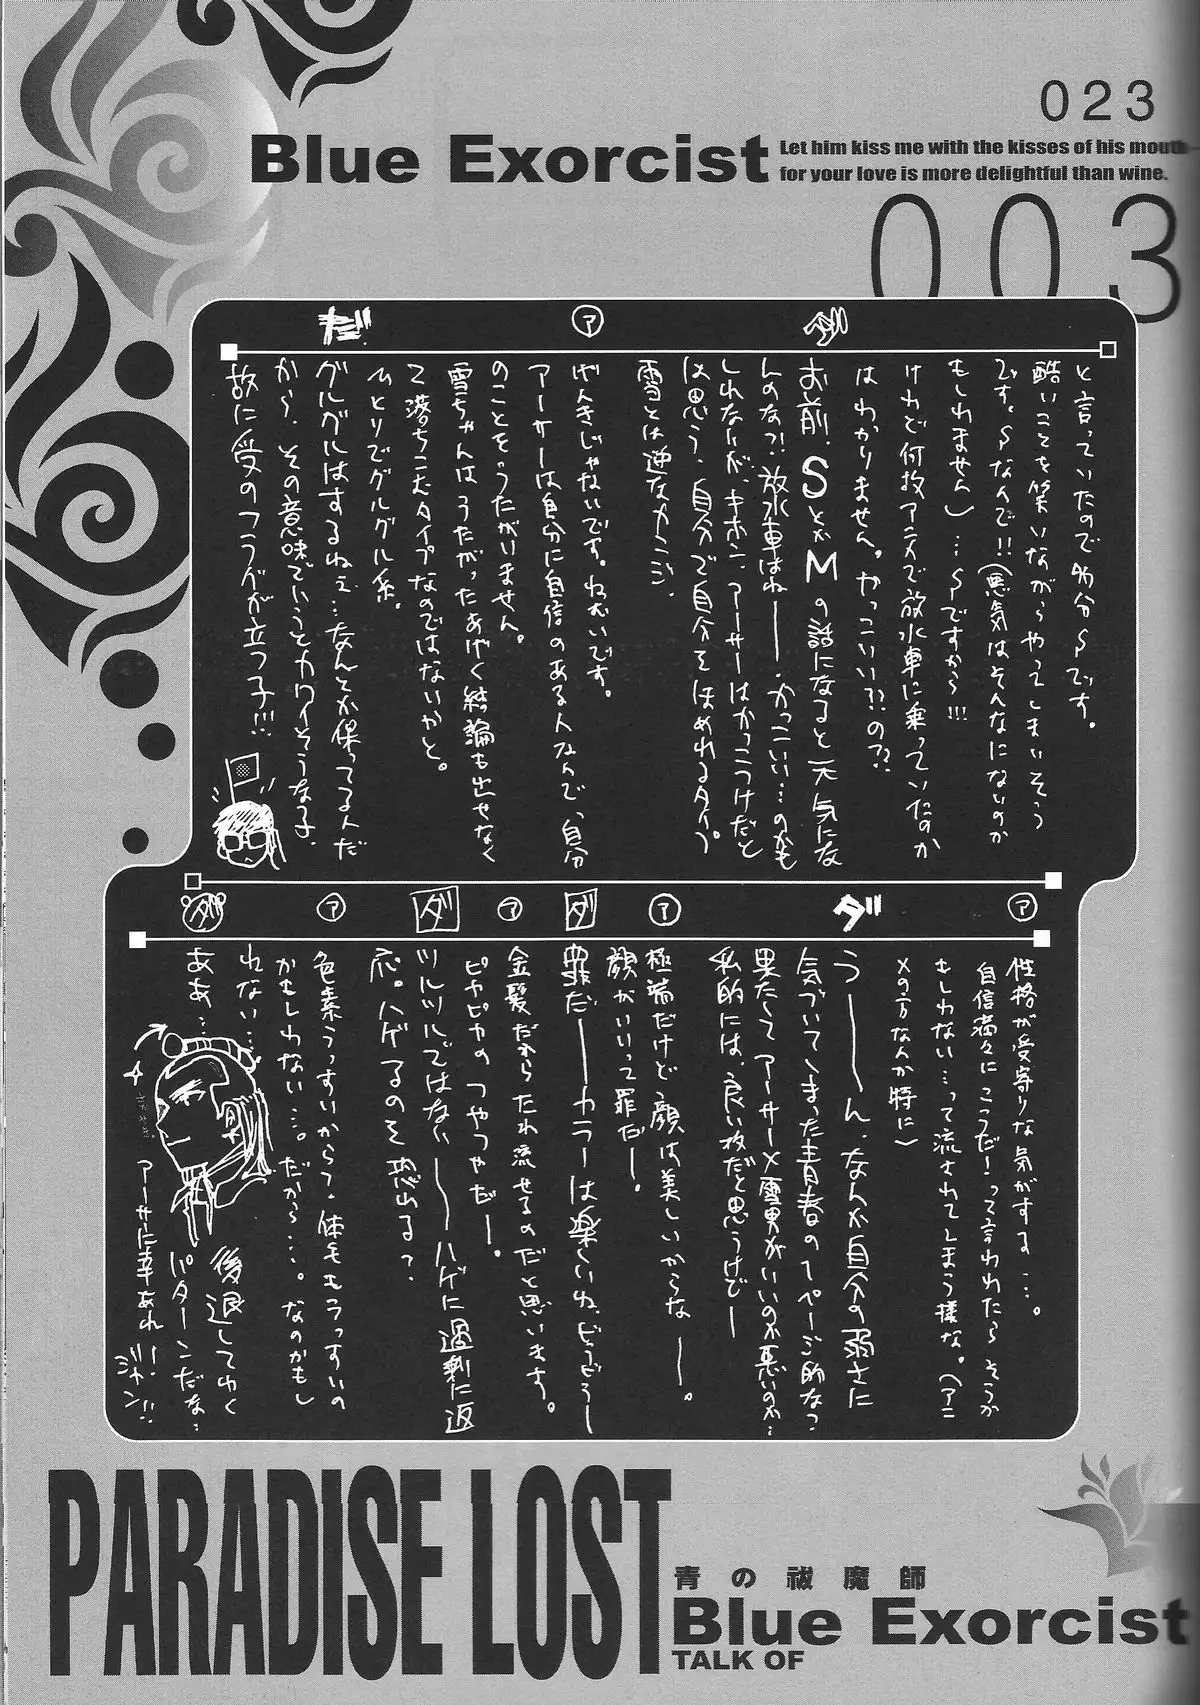 023
Blue Exorcist
Let him kiss me with the kisses of his mouth
for your love is more delightful than wine.
003
と言っていたので多分Sです。
酷いことを笑いながらやってしまいそう
です。Sなんで!!(悪気はそんなにないのか
もしれません)…Sですから!!!
けれど何故アニメで放水車に乗っていたのか
はわかりません。やっこいい??の??
ダ
お前、SとかMの話になると元気にな
んのな?!放水車はねー、かっこいい…のかも
しれないが、キホン、アーサーはかっこつけだと
は思う、自分で自分をほめれるタイプ。
雪とは逆なカンジ。
ア
げんきじゃないです。ねむいです。
アーサーは自分に自信のある人なんで、自分
のことをうたがいません。
雪ちゃんはうたがったあげく結論も出せなく
て落ちこむタイプなのではないかと。
ひとりでグルグル系。
だ
グルグルはするねぇ…なんとか保ってるんだ
から、その意味でいうとカワイそうな子、
故に受のフラグが立つ子!!!
ア
性格が受寄りな気がする…。
自信満々にこうだ!って言われたらそうか
もしれない…って流されてしまう様な。(アニ
メの方なんか特に)
ダ
うーん、なんか自分の弱さに
気づいてしまった青春の1ページ的な?
果たしてアーサー×雪男がいいのか悪いのか…
私的には、良い攻だと思うけどー
ア
極端だけど顔は美しいからなー。
顔がいいって罪だー。
ダ
罪だーカラーは楽しいね、どうどうー
ア
金髪だからたれ流せるのだと思います。
ピカピカのつやつやだー。
ダ
ツルツルではないーハゲに過剰に返
応。ハゲるのを恐れる?
ア
色素うっすいからって、体毛もうっすいの
かもしれない…。だから…。なのかもし
れない…。
ダ
ああ…
後退してゆく
パターンだな…
アーサーに幸あれ!!
ジャン!!
PARADISE LOST
青の祓魔師
Blue Exorcist
TALK OF